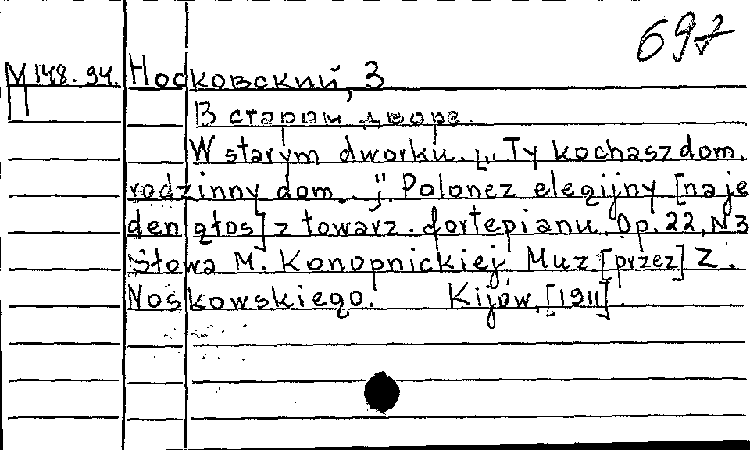 697
М 148.94. Носковский, З
П
В старом дворе.
W starym dworku. „Ty kochasz dom,
rodzinny dom..." Polonez elegijny [na je
den głos] z towarz. fortepianu. Op.22, N3
Słowa M. Konopnickiej Muz. [przez] Z.
Noskowskiego. Kijów, [1911]